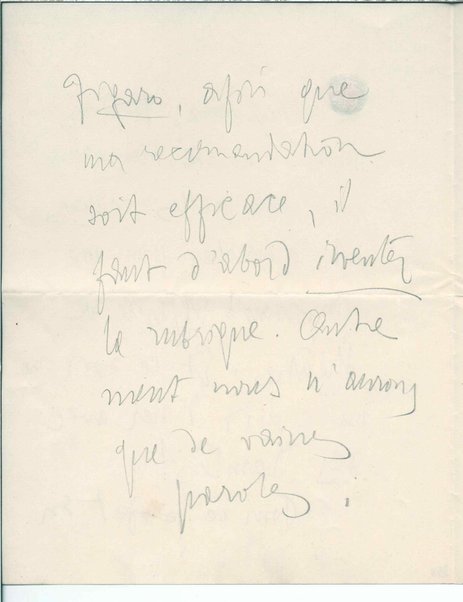 Figaro, afin que
ma recomandation
soit efficace, il
faut d'abord inventer
la rubrique. Autre
ment nous n'aurons
que de vaines
paroles.